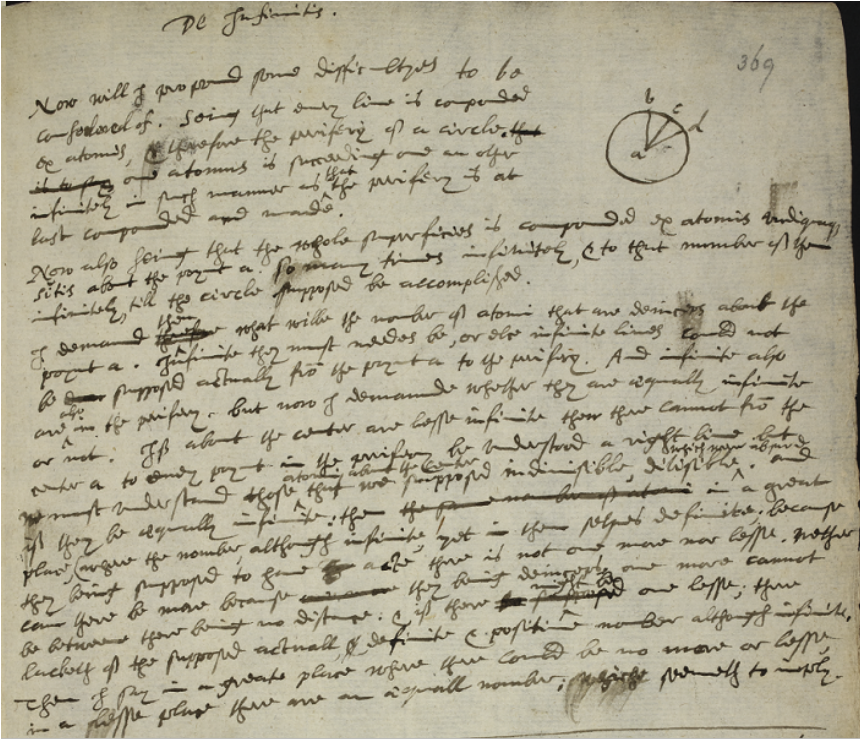 De Infinitis.
369
Now will I propound some difficultyes to be
considered of. Seing that every line is compounded
ex atomis, & therefore the perifery of a circle, that
is to say one atomus is succeeding one an other
infinitely in such manner as that the perifery is at
last compounded and made.
b c d
a
Now also seing that the whole superficies is compounded ex atomis undiquaq,
sitis about the poynt a. so many times infinitely, & to that number of them
infinitely, till the circle supposed be accomplished.
I demand then what wilbe the number of atomi that are deinceps about the
poynt a. Infinite they must needes be, or els infinite lines could not
be supposed actually frō the poynt a to the perifery. And infinite also
are also in the perifery. but now I demaunde whether they are æqually infinite
or not. If about the center are lesse infinite then there cannot frō the
center a to every poynt in the perifery be understood a right line, but
we must understand those atomi about the center that we supposed indivisible, divisible. which were absurd. and
if they be æqually infinite: then the same number of atomi in a great
place, (where the number, although infinite, yet in them selves definite; because
they being supposed to have acte, there is not one more nor lesse. nether
can there be more because they being deinceps one more cannot
be betweene there being no distance. & if there might be supposed one lesse; there
lacketh of the supposed actuall, & definite & positive number although infinite.
Then I say in a greate place where there could be no more or lesse,
in a lesse place there are an æquall number; which seemeth to imply.